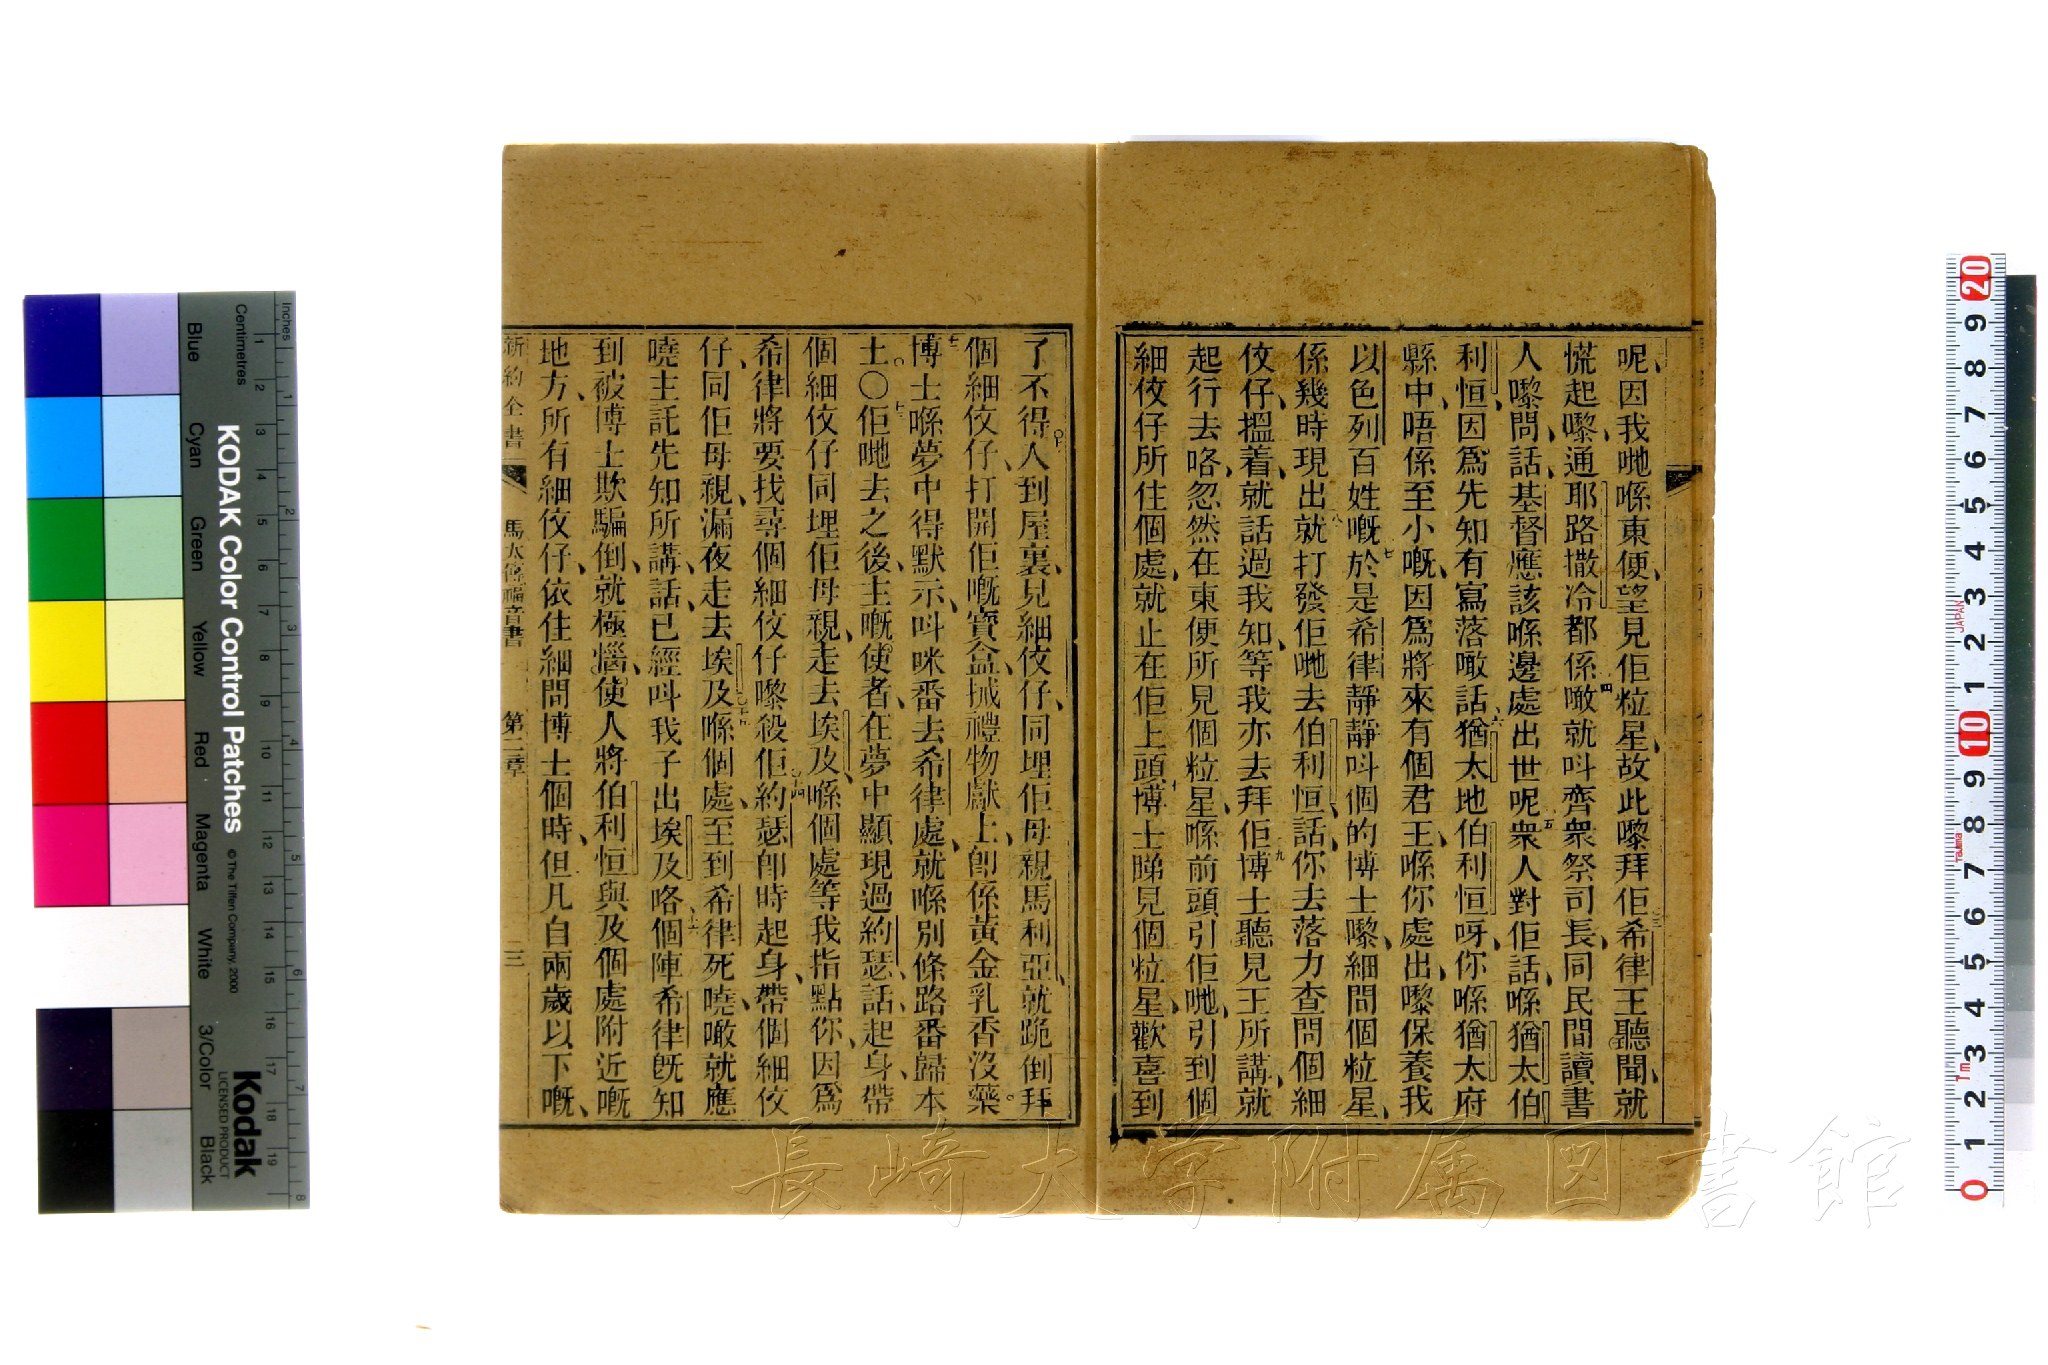 呢、因我哋喺東便望見佢粒星、故此嚟拜佢三希律王聽聞、就
慌起嚟、通耶路撒冷都係噉四就呌齊衆祭司長、同民間讀書
人嚟、問話、基督應該喺邊處出世呢五衆人對佢話、喺猶太伯
利恒、因爲先知有寫落噉話六猶太地伯利恒呀、你喺猶太府
縣中、唔係至小嘅、因爲將來有個君王、喺你處出、嚟保養我
以色列百姓嘅七於是希律靜靜呌個的博士嚟、細問個粒星、
係幾時現出八就打發佢哋去伯利恒、話、你去落力查問個細
佼仔、搵着、就話過我知、等我亦去拜佢九博士聽見王所講、就
起行去、咯、忽然在東便所見個粒星、喺前頭引佢哋、引到個
細佼仔所住個處、就止在佢上頭十博士睇見個粒星、歡喜到
了不得十一人到屋裏、見細佼仔、同埋佢母親馬利亞、就跪倒拜
個細佼仔、打開佢嘅寶盒、搣禮物獻上、卽係黃金乳香沒藥。
十二博士喺夢中得默示、呌咪番去希律處、就喺別條路番歸本
土。〇十三佢哋去之後、主嘅使者、在夢中顯現過約瑟、話、起身、帶
個細佼仔同埋佢母親、走去埃及、喺個處等我指點你、因爲
希律將要找尋個細佼仔嚟殺佢十四約瑟卽時起身、帶個細佼
仔、同佢母親、漏夜走去埃及十五喺個處、至到希律死曉、噉就應
曉主託先知所講話、已經呌我子出埃及咯十六個陣希律既知
到被博士欺騙倒、就極惱、使人將伯利恒與及個處附近嘅
地方、所有細佼仔、依住細問博士個時、但凡自兩歲以下嘅、
新約全書 馬太傳福音書 第二章 三
KODAK Color Control Patches
© The Tiffen Company, 2000
Kodak
LICENSED PRODUCT
Inches
Centimetres
Blue Cyan Green Yellow Red Magenta White 3/Color Black
1 2 3 4 5 6 7 8 9 10 11 12 13 14 15 16 17 18 19
1 2 3 4 5 6 7 8
20 9 8 7 6 5 4 3 2 1 10 9 8 7 6 5 4 3 2 1 0
JAPAN
Tajima
1m
長崎大学附属図書館